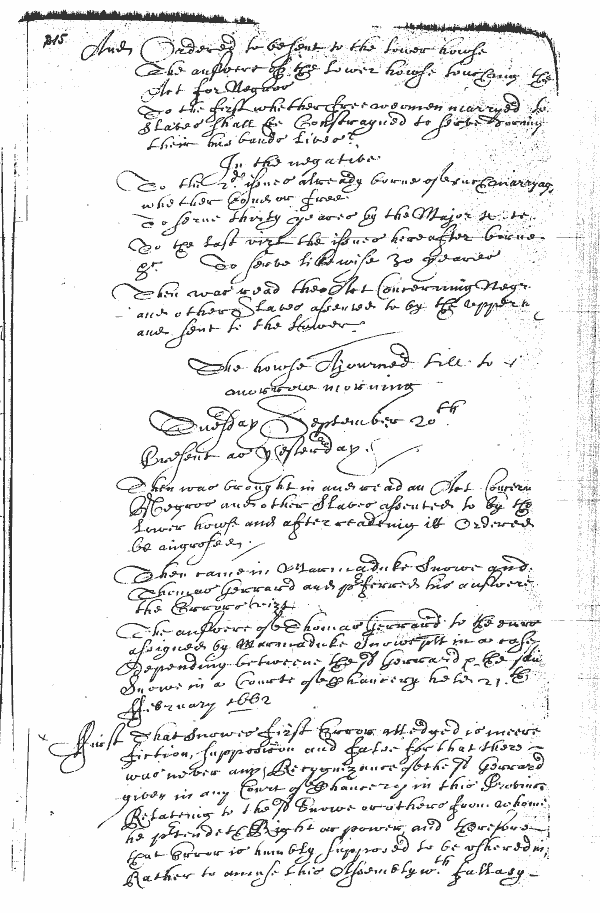 215
And Ordered to be sent to the lower howse
The answere of the Lower howse touching the
Act for Negros
To the first whether free woemen marryed to
Slaves shall be Constrayned to serve during
their husbands lives?
In the negative
To the 2d issues already borne of such marryag
whether bond or free
To serve thirty yeares by the Major
To the last vizt the issues hereafter borne
&c To serve likewise 30 yeares
Then was read the Act Concerning Negr
and other Slaves assented to by the upper
and sent to the Lower
The howse Ajourned till to
morrow morning
Tuesday September 20th
Present as yesterday
Then was brought in and read an Act Concern
Negros and other Slaves assented to by the
Lower howse and after reading itt Ordered
be ingrossed
Then came in Marmaduke Snowe and
Thomas Gerrard and pferred his answere
the Errors vizt
The answere of Thomas Gerrard to the errors
assigned by Marmaduke Snowe plt in a case
Depending betweene the sd Gerrard & the said
Snowe in a Courte of Chancery helde 21th
February 1662
First That Snowes first Error alledged is meere
fiction, Supposicon and false for that there
was never any Recognizance of the sd Gerrard
given in any Court of Chancery in this Province
Relateing to the sd Snowe or others from whome
he ptendeth Right or power, and therefore
that Error is humbly supposed to be ushered in
Rather to amuse this Assembly wth fallasy